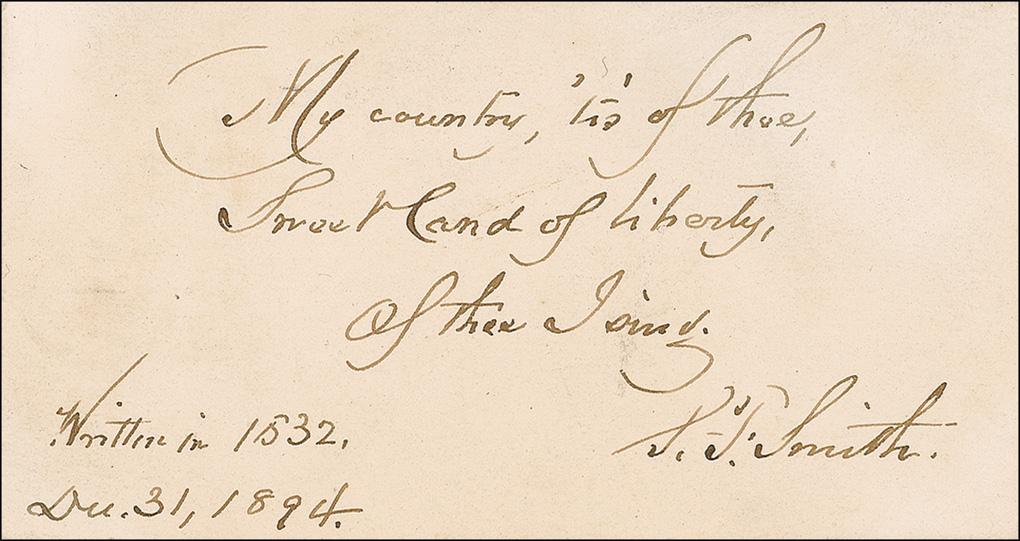 My country, 'tis of thee,
Sweet land of liberty,
Of thee I sing.
Written in 1832.
S. F. Smith.
Dec. 31, 1894.